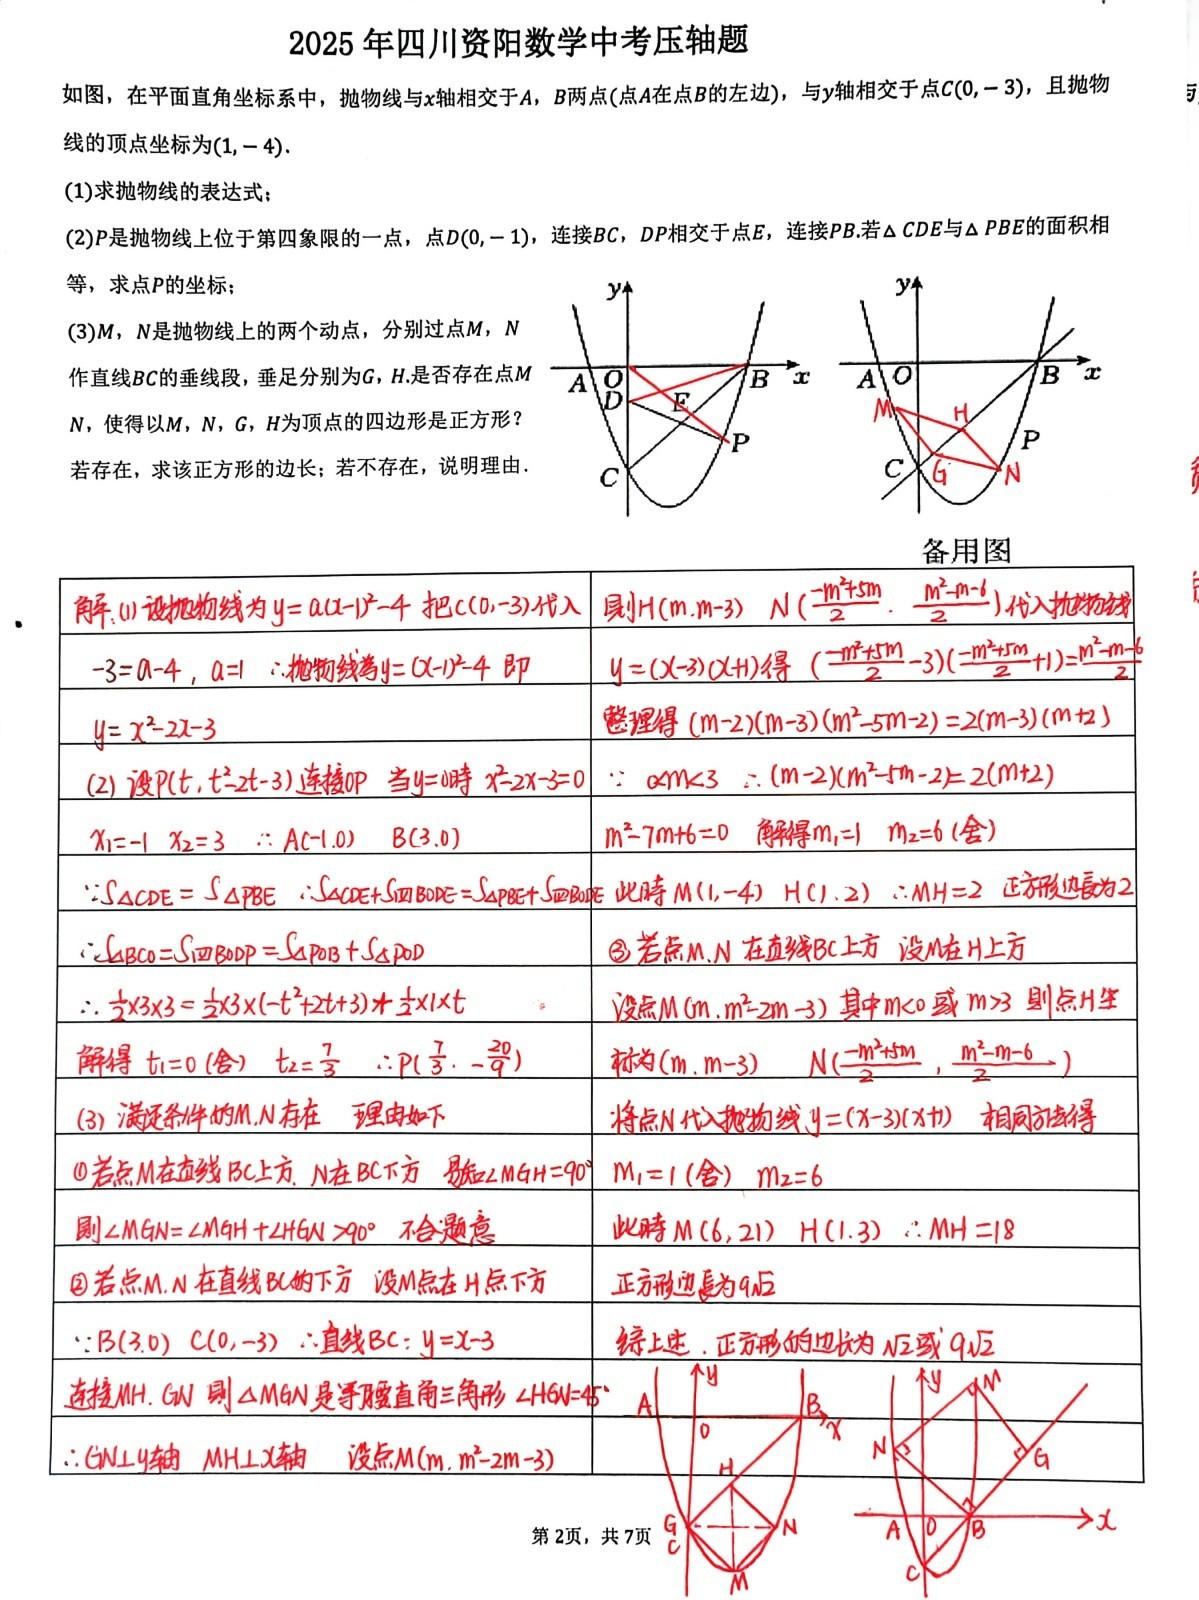 2025年四川资阳数学中考压轴题
如图，在平面直角坐标系中，抛物线与x轴相交于A，B两点(点A在点B的左边)，与y轴相交于点C(0,－3)，且抛物
线的顶点坐标为(1,－4).
(1)求抛物线的表达式；
(2)P是抛物线上位于第四象限的一点，点D(0,－1)，连接BC，DP相交于点E，连接PB.若△CDE与△PBE的面积相
等，求点P的坐标；
(3)M，N是抛物线上的两个动点，分别过点M，N
作直线BC的垂线段，垂足分别为G，H.是否存在点M
N，使得以M，N，G，H为顶点的四边形是正方形？
若存在，求该正方形的边长；若不存在，说明理由.
y
A O B x
D E
P
C
y
A O B x
M H
P
C G N
备用图
解:(1)设抛物线为y=a(x-1)²-4 把C(0,-3)代入
-3=a-4, a=1 ∴抛物线为y=(x-1)²-4 即
y=x²-2x-3
(2)设P(t, t²-2t-3)连接OP 当y=0时 x²-2x-3=0
x₁=-1 x₂=3 ∴A(-1.0) B(3.0)
∵S△CDE=S△PBE ∴S△CDE+S四BODE=S△PBE+S四BODE
∴S△BCO=S四BODP=S△POB+S△POD
∴½×3×3=½×3×(-t²+2t+3)+½×1×t
解得 t₁=0(舍) t₂=7/3 ∴P(7/3.-20/9)
(3)满足条件的M.N存在 理由如下
①若点M在直线BC上方.N在BC下方 易知∠MGH=90°
则∠MGN=∠MGH+∠HGN>90° 不合题意
②若点M.N在直线BC的下方 设M点在H点下方
∵B(3.0) C(0,-3) ∴直线BC:y=x-3
连接MH.GN 则△MGN是等腰直角三角形 ∠HGN=45°
∴GN⊥y轴 MH⊥x轴 设点M(m.m²-2m-3)
则H(m.m-3) N((-m²+5m)/2.(m²-m-6)/2)代入抛物线
y=(x-3)(x+1)得 ((-m²+5m)/2-3)((-m²+5m)/2+1)=(m²-m-6)/2
整理得(m-2)(m-3)(m²-5m-2)=2(m-3)(m+2)
∵ 0<m<3 ∴(m-2)(m²-5m-2)=2(m+2)
m²-7m+6=0 解得m₁=1 m₂=6(舍)
此时M(1,-4) H(1.2) ∴MH=2 正方形边长为2
③若点M.N在直线BC上方 设M在H上方
设点M(m.m²-2m-3)其中m<0或m>3 则点H坐
标为(m.m-3) N((-m²+5m)/2,(m²-m-6)/2)
将点N代入抛物线y=(x-3)(x+1) 相同方法得
m₁=1(舍) m₂=6
此时M(6,21) H(1.3) ∴MH=18
正方形边长为9√2
综上述.正方形的边长为√2或9√2
y
A O B x
H
G N
C
M
y
M
N G
A O B x
C
第2页，共7页